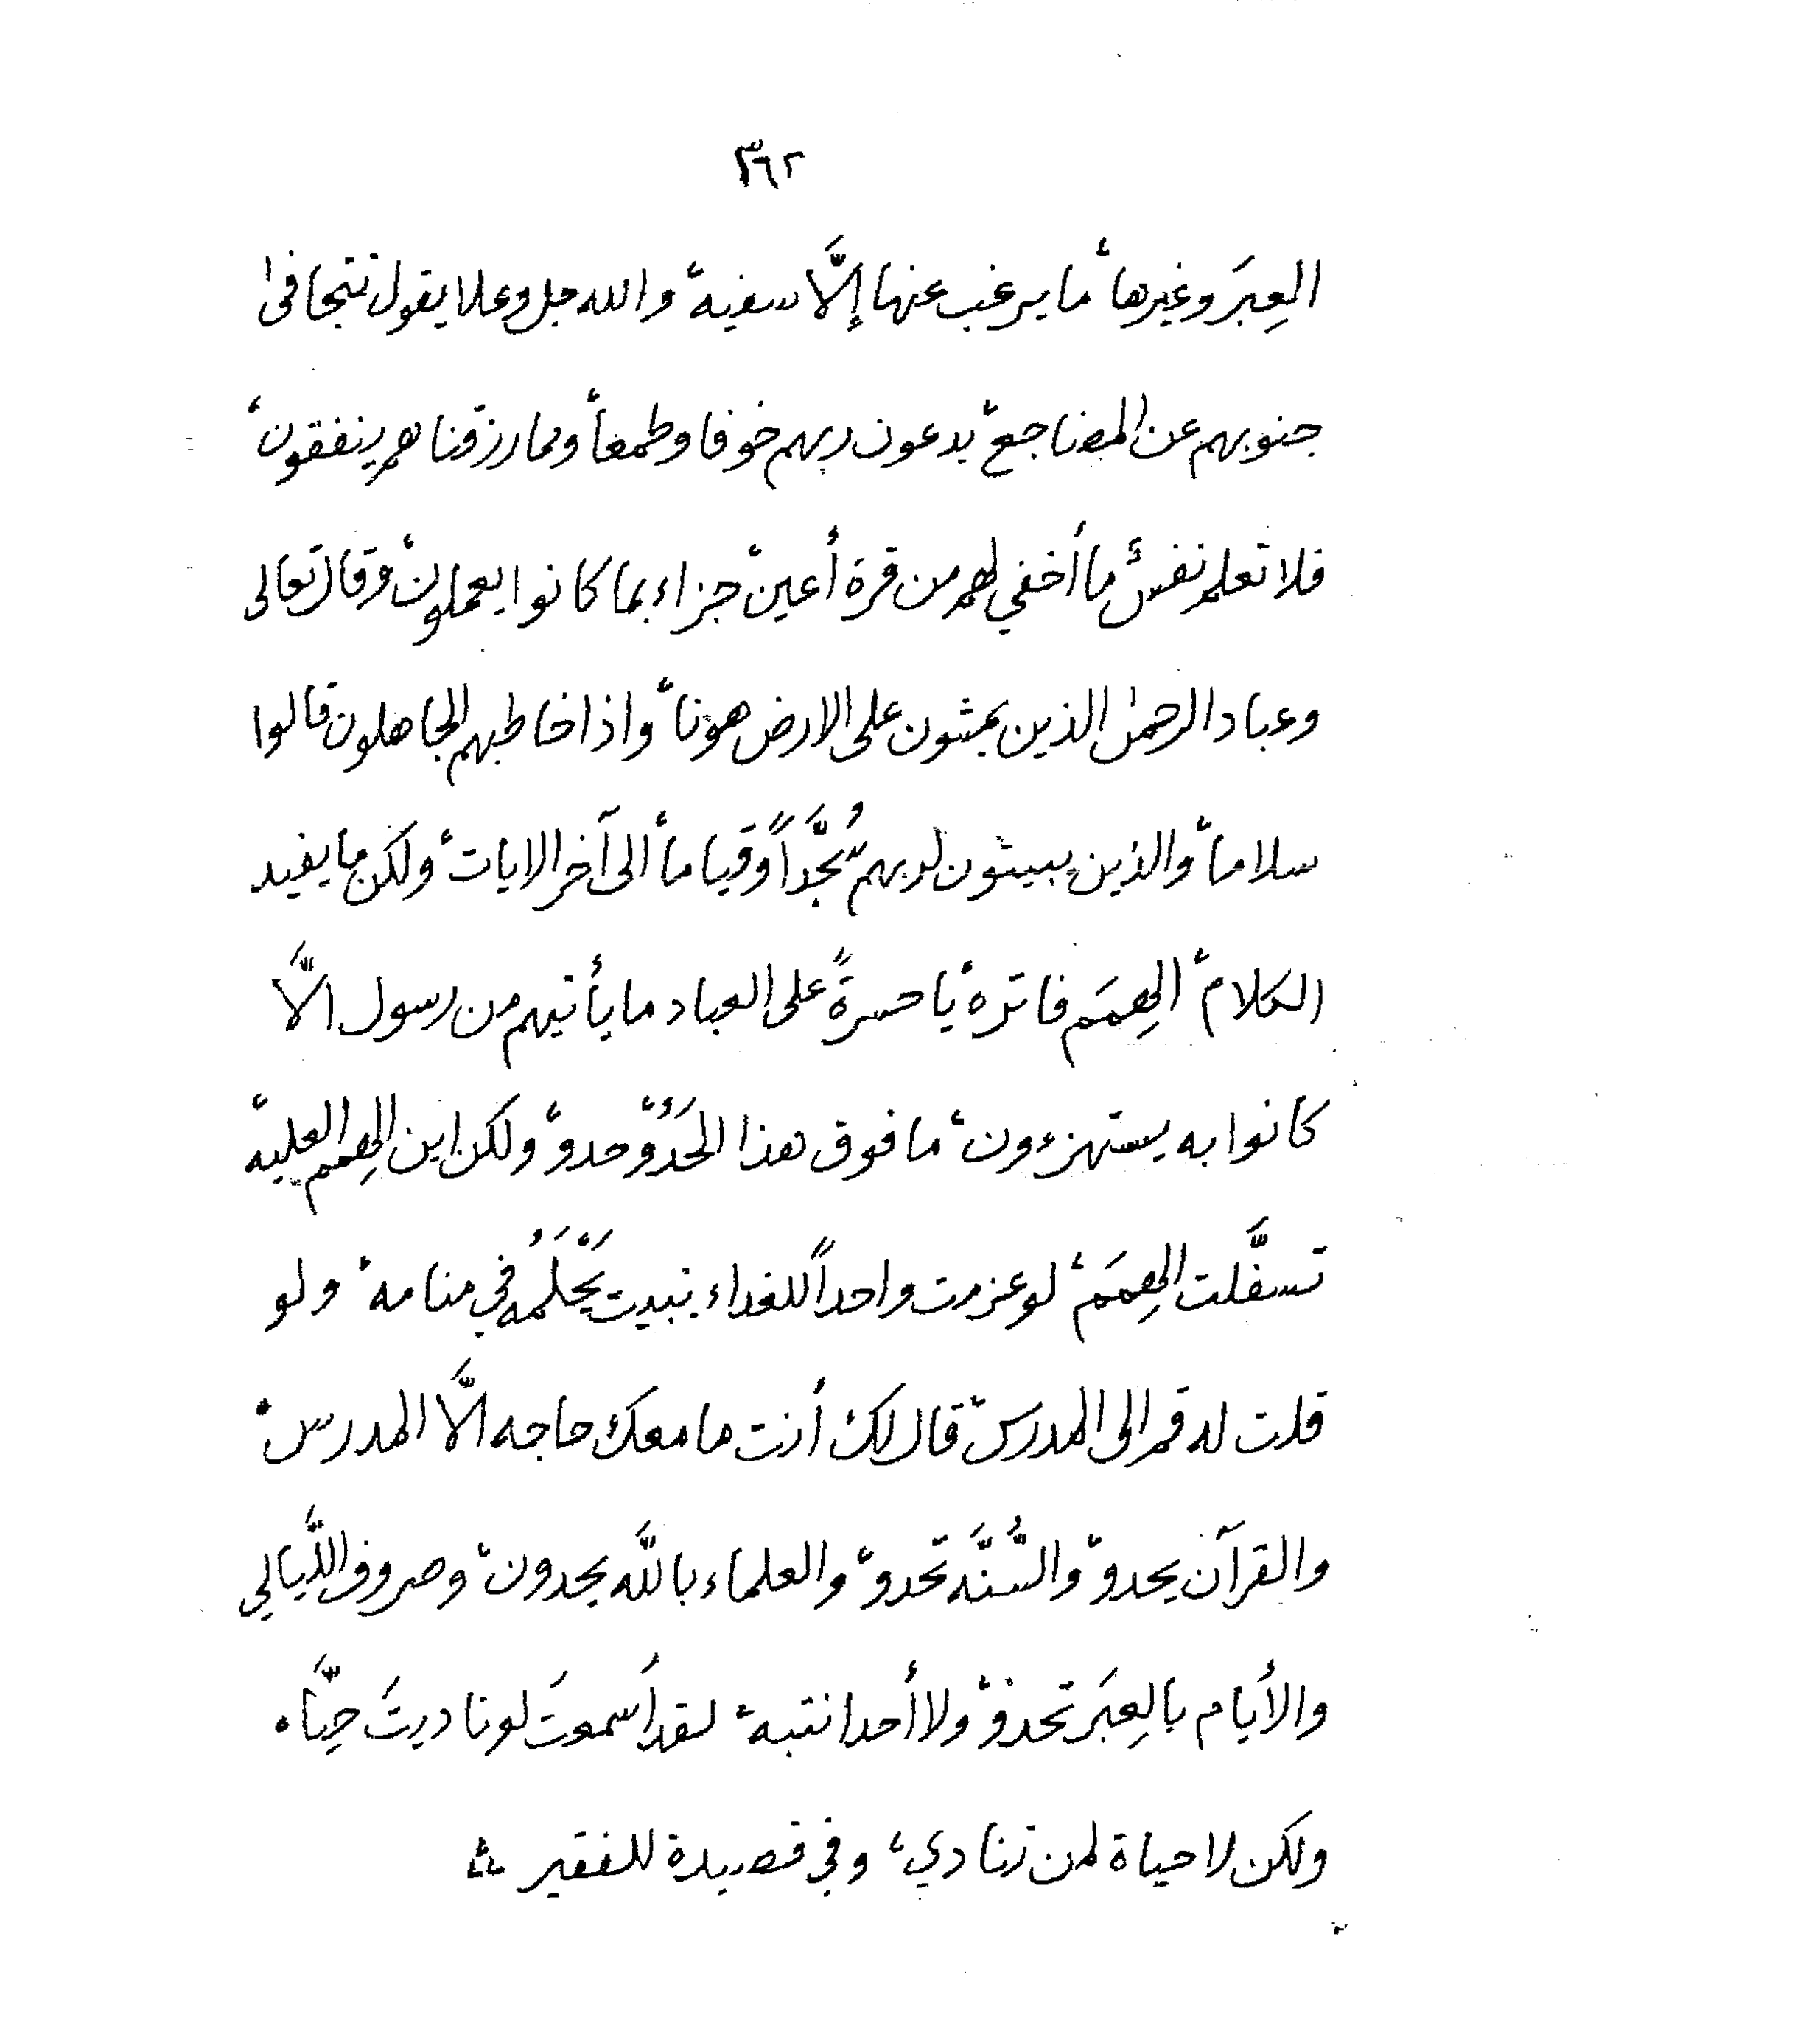 ٣٦٢
العِبَر وغيرها، ما يرغب عنها إلَّا سفيه، والله جل وعلا يقول تتجافى
جنوبهم عن المضاجع، يدعون ربهم خوفا وطمعاً، ومما رزقناهم ينفقون،
فلا تعلم نفسٌ ما أخفي لهم من قرة أعين، جزاء بما كانوا يعملون، وقال تعالى
وعباد الرحمٰن الذين يمشون على الارض هونا، واذا خاطبهم الجاهلون قالوا
سلاما، والذين يبيتون لربهم سُجَّداً وقياما، الى آخر الايات، ولكن ما يفيد
الكلام، الهِمَم فاتره، يا حسرةً على العباد ما يأتيهم من رسول الَّا
كانوا به يستهزءون، ما فوق هذا الحَدْو، حدو، ولكن اين الهِمم العليه،
تسفَّلت الهِمَم، لو عزمت واحداً للغداء يبيت يَحْلَمُه في منامه، ولو
قلت له قم الى المدرس، قال لك أنت ما معك حاجه الَّا المدرس،
والقرآن يحدو، والسُّنَّه تحدو، والعلماء باللَّه يحدون، وصروف اللَّيالي
والأيام بالعِبَر تحدو، ولا أحد انتبه، لقد أَسمعتَ لو ناديتَ حيَّا،
ولكن لا حياة لمن تنادي، وفي قصيدة للفقير